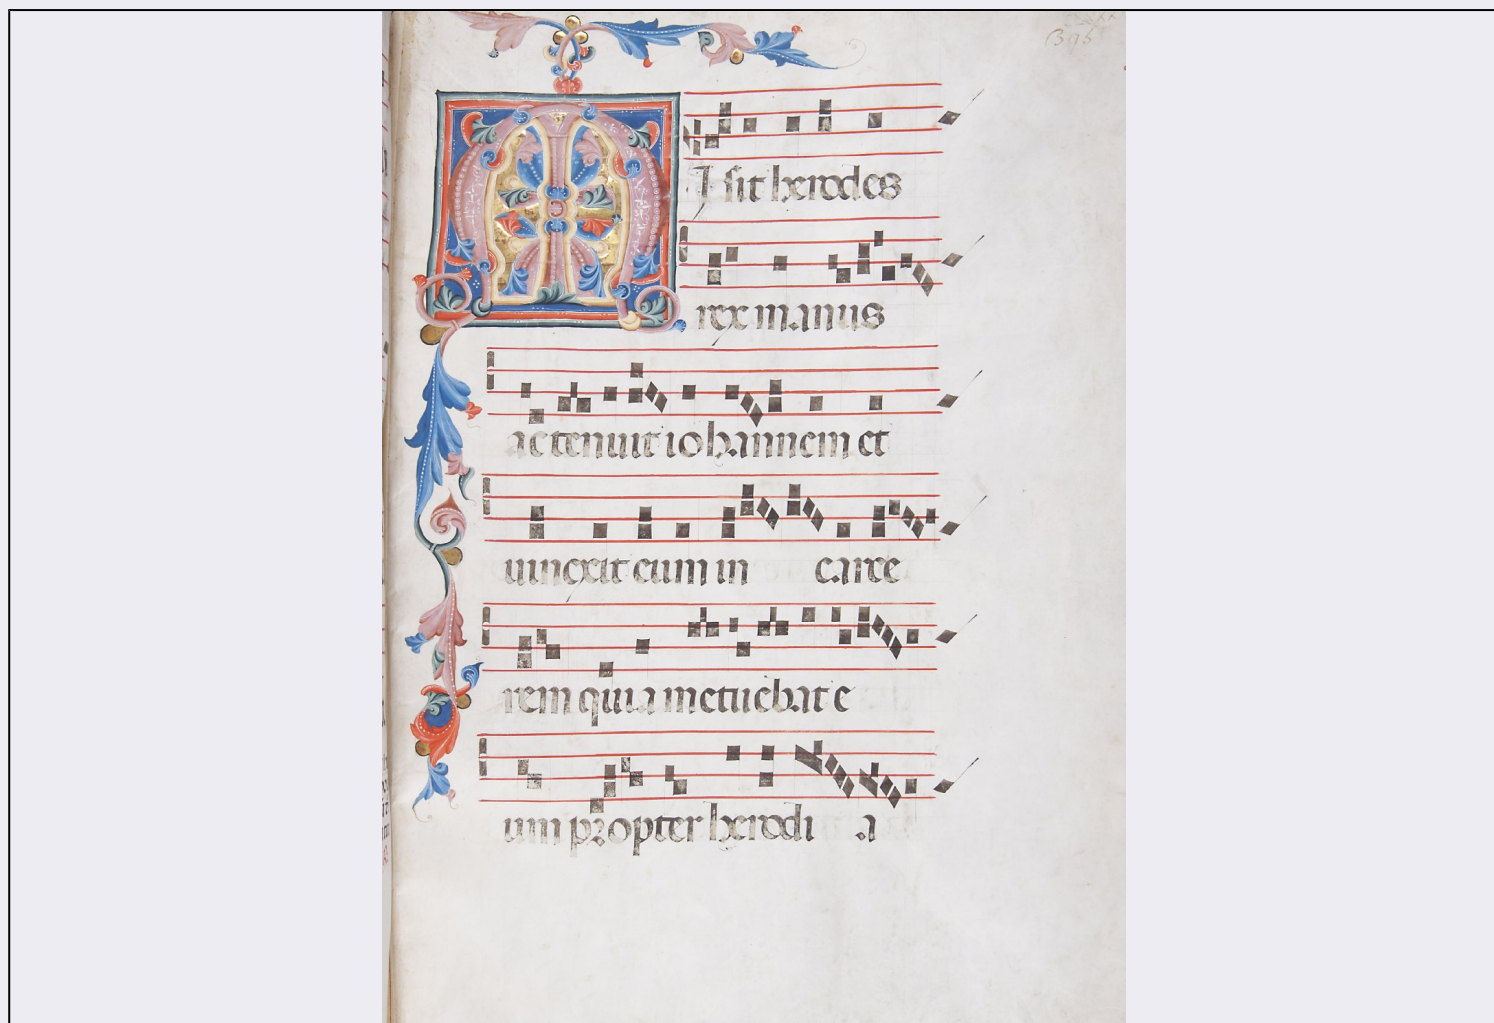 M
I sit herodes
rex manus
ac tenuit iohannem et
uinxit eum in carce
rem quia metuebat e
um propter herodi a